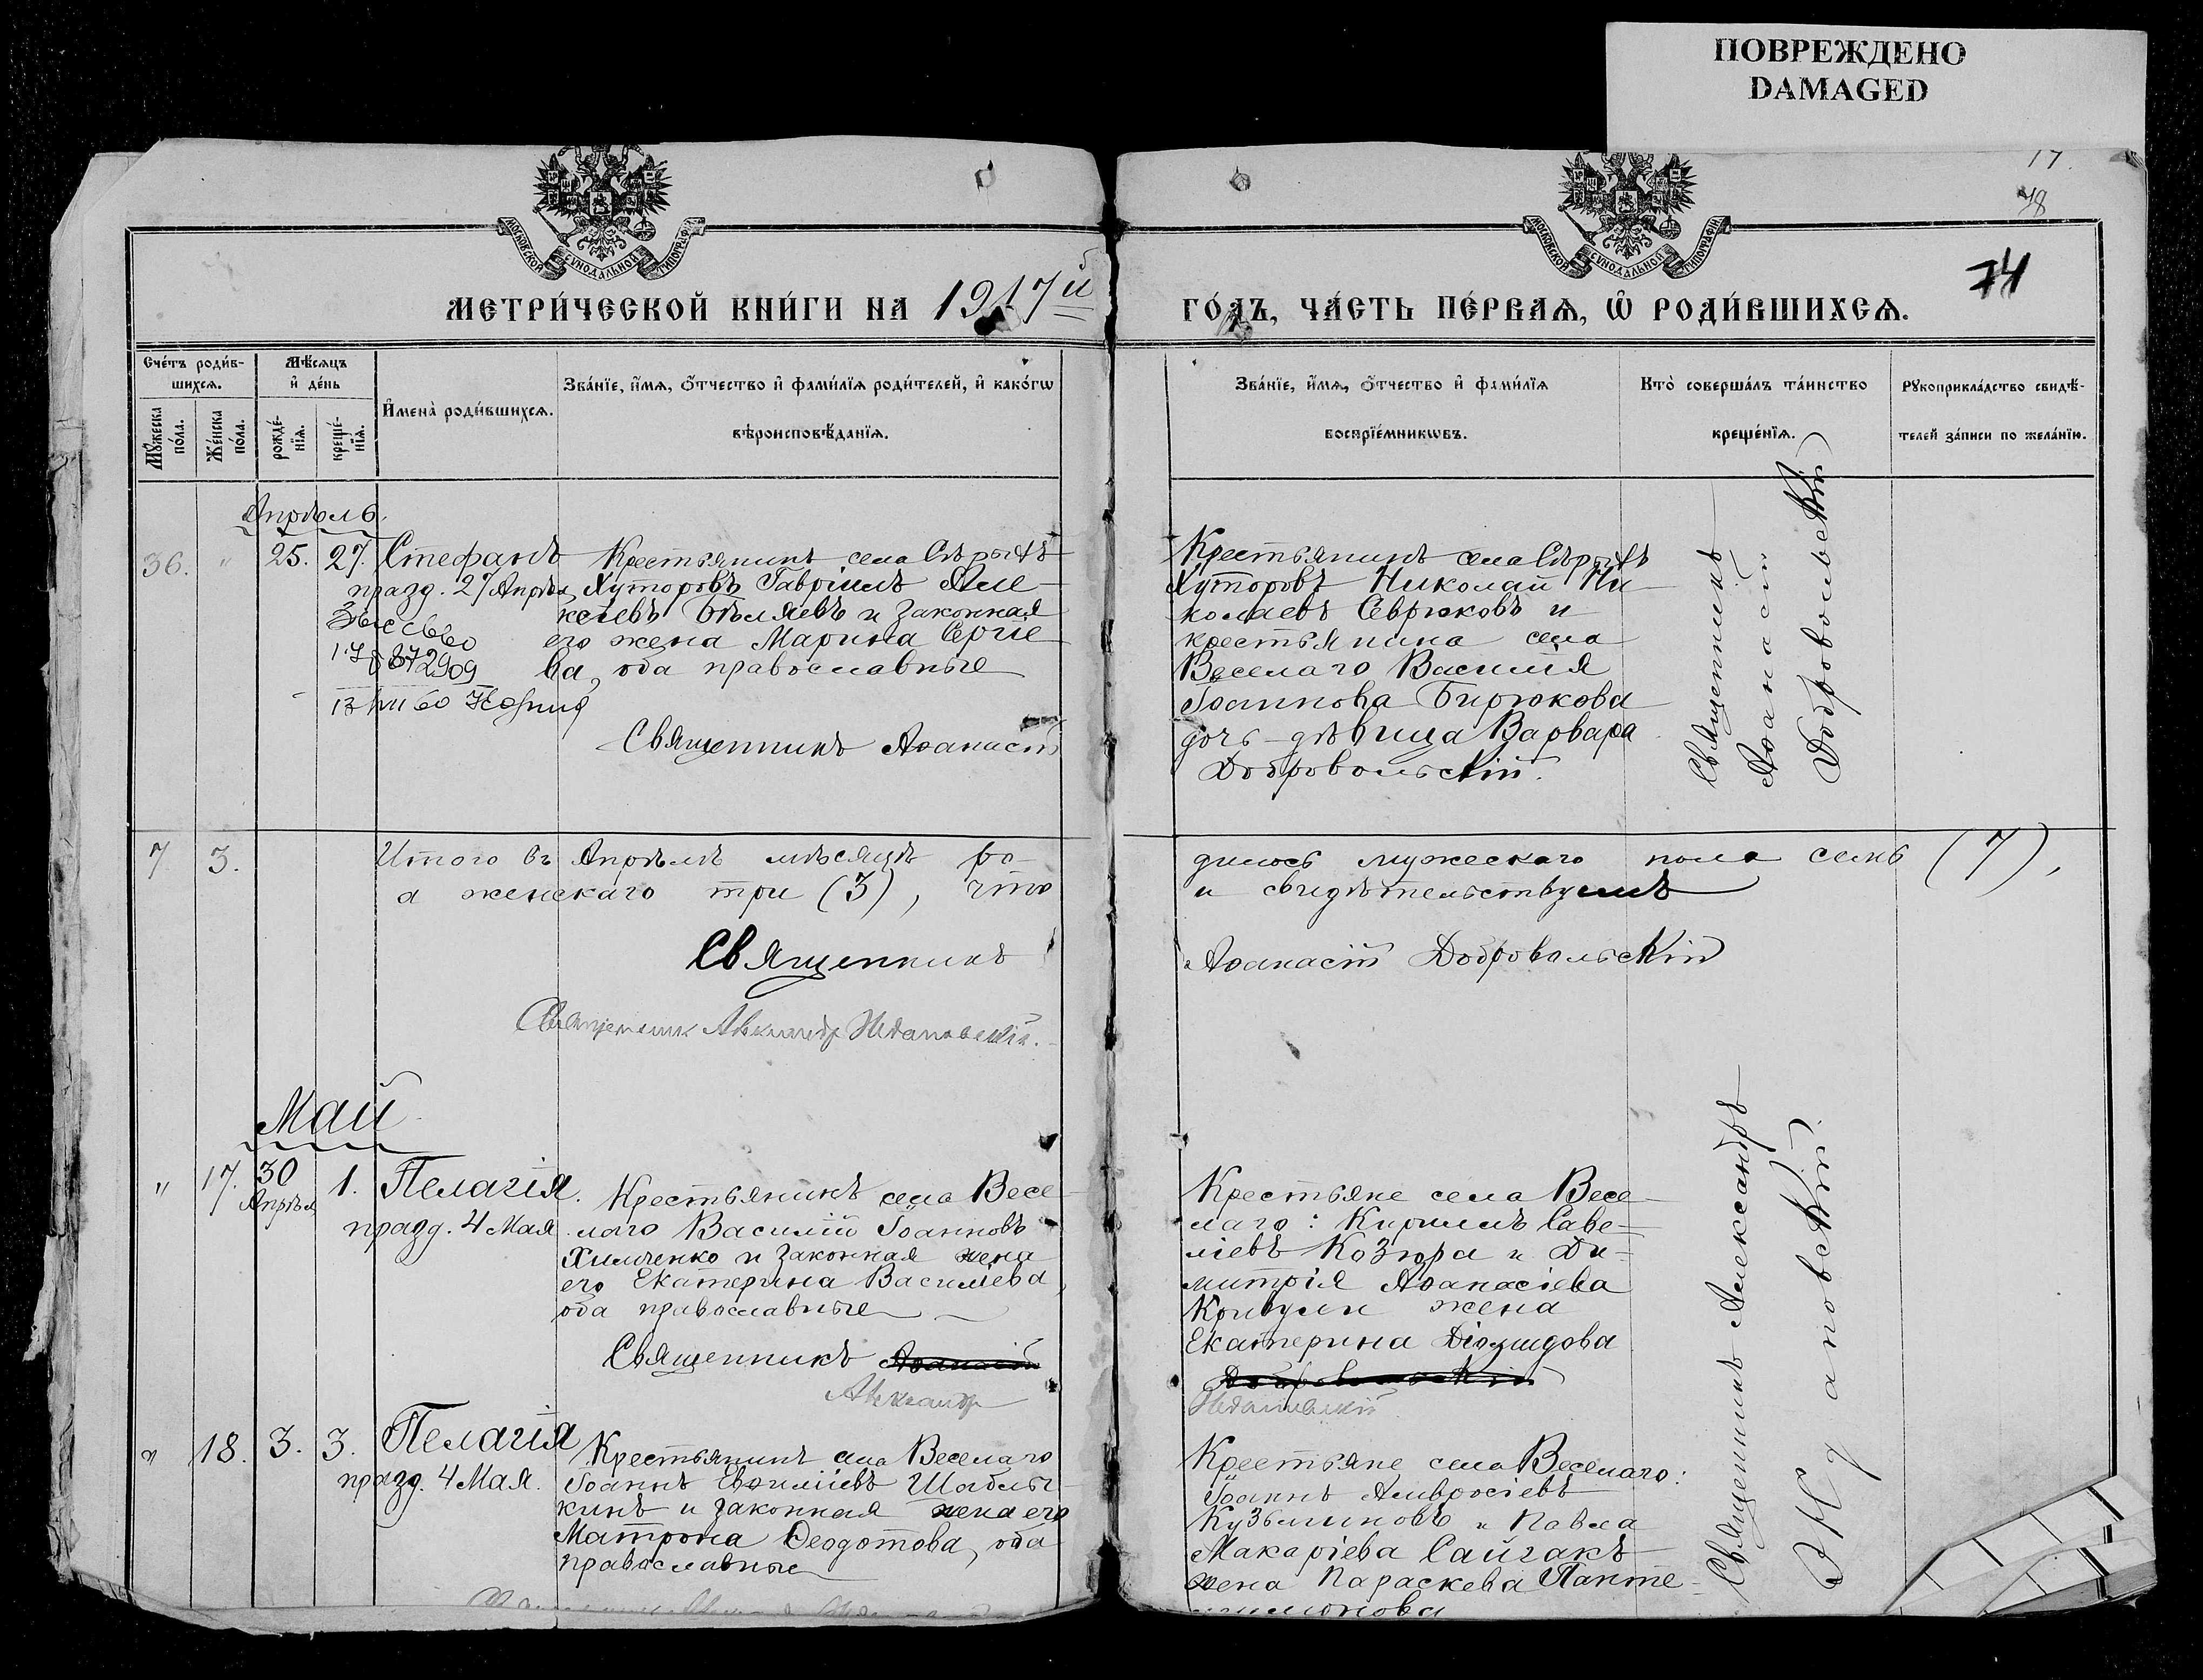 ПОВРЕЖДЕНО
DAMAGED
17.
78
74
МОСКОВСКОЙ СѴНОДАЛЬНОЙ ТИПОГРАФІИ
МОСКОВСКОЙ СѴНОДАЛЬНОЙ ТИПОГРАФІИ
МЕТРИ́ЧЕСКОЙ КНИ́ГИ НА 1917й
ГО́ДЪ, ЧА́СТЬ ПЕ́РВАЯ, Ѽ РОДИ́ВШИХСЯ.
Сче́тъ роди́в-
шихся.
Мꙋ́жеска по́ла.
Же́нска по́ла.
Мѣ́сяцъ
и҆ де́нь
рожде́-
нїя.
креще́-
нїя.
И҆мена̀ роди́вшихся.
Зва́нїе, и҆́мя, о҆́тчество и҆ фами́лїя роди́телей, и҆ како́гѡ
вѣроисповѣ́данїя.
Зва́нїе, и҆́мя, о҆́тчество и҆ фами́лїя
воспрїе́мникѡвъ.
Кто̀ соверша́лъ та́инство
креще́нїя.
Рꙋкоприкла́дство свидѣ́-
телей за́писи по жела́нїю.
Апрѣль.
36. " 25. 27. Стефанъ
празд. 27 Апрѣля
Крестьянинъ села Сѣрыхъ
Хуторовъ Гавріилъ Але-
ксѣевъ Бѣляевъ и законная
его жена Марина Сергіе-
ва, оба православные
Священникъ Аѳанасій
Крестьянинъ села Сѣрыхъ
Хуторовъ Николай Ни-
колаевъ Севрюковъ и
крестьянина села
Веселаго Василія
Іоаннова Бирюкова
дочь-дѣвица Варвара
Добровольскій.
Священникъ
Аѳанасій
Добровольскій
7 3. Итого въ Апрѣлѣ мѣсяцѣ ро-
дилось мужескаго пола семь (7),
а женскаго три (3), что
и свидѣтельствуемъ
Священникъ
Аѳанасій Добровольскій
Священник Александр Ждановскій.
Май
" 17. 30 Апрѣля 1. Пелагія.
празд. 4 Мая
Крестьянинъ села Весе-
лаго Василій Іоанновъ
Химченко и законная жена
его Екатерина Василіева,
оба православные
Священникъ Аѳанасій
Александр
Крестьяне села Весе-
лаго: Кириллъ Саве-
ліевъ Козюра и Ди-
митрія Аѳанасіева
жена
Екатерина Діомидова
Добровольскій
Ждановскій
" 18. 3. 3. Пелагія
празд. 4 Мая.
Крестьянинъ села Веселаго
Іоаннъ Евѳиміевъ Шаблы-
кинъ и законная жена его
Матрона Ѳеодотова, оба
православные
Крестьяне села Веселаго:
Іоаннъ Амвросіевъ
Кузьминовъ и Павла
Макаріева Сайгакъ
жена Параскева Панте-
лиимонова
Священникъ Александръ
Ждановскій.